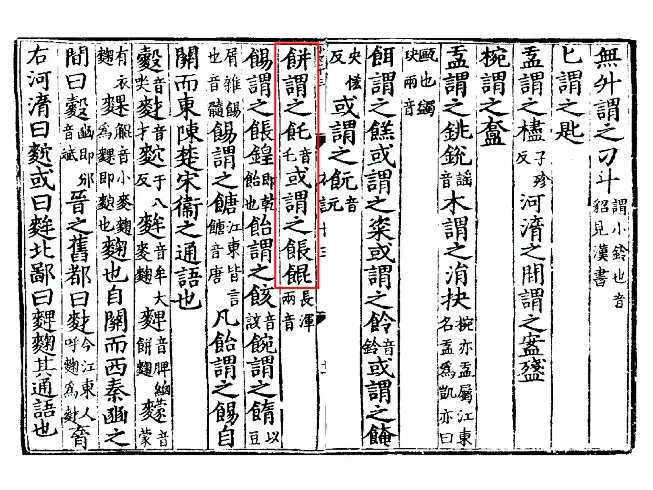 無升謂之刁斗謂小鈴也音貂見漢書
匕謂之匙
盂謂之子殄反河濟之間謂之
椀謂之
盂謂之銚銳謠音木謂之涓抉椀亦盂屬江東名盂為凱亦曰
甌也蠲玦兩音
餌謂之餻或謂之粢或謂之䬾音鈴或謂之䭆
央怯反或謂之䬧音元
餅謂之飥音乇或謂之餦餛長渾兩音
餳謂之餦餭即乾飴也飴謂之䬵音該䬪謂之䭉以豆
屑雜餳也音髓餳謂之餹江東皆言餹音唐凡飴謂之餳自
關而東陳楚宋衞之通語也
音哭音才于八反音牟大麥麴音脾細餅麴音蒙
有衣麴音小麥麴為即也麴也自關而西秦豳之
間曰豳即邠音斌晉之舊都曰今江東人呼麴為齊
右河濟曰或曰北鄙曰麴其通語也